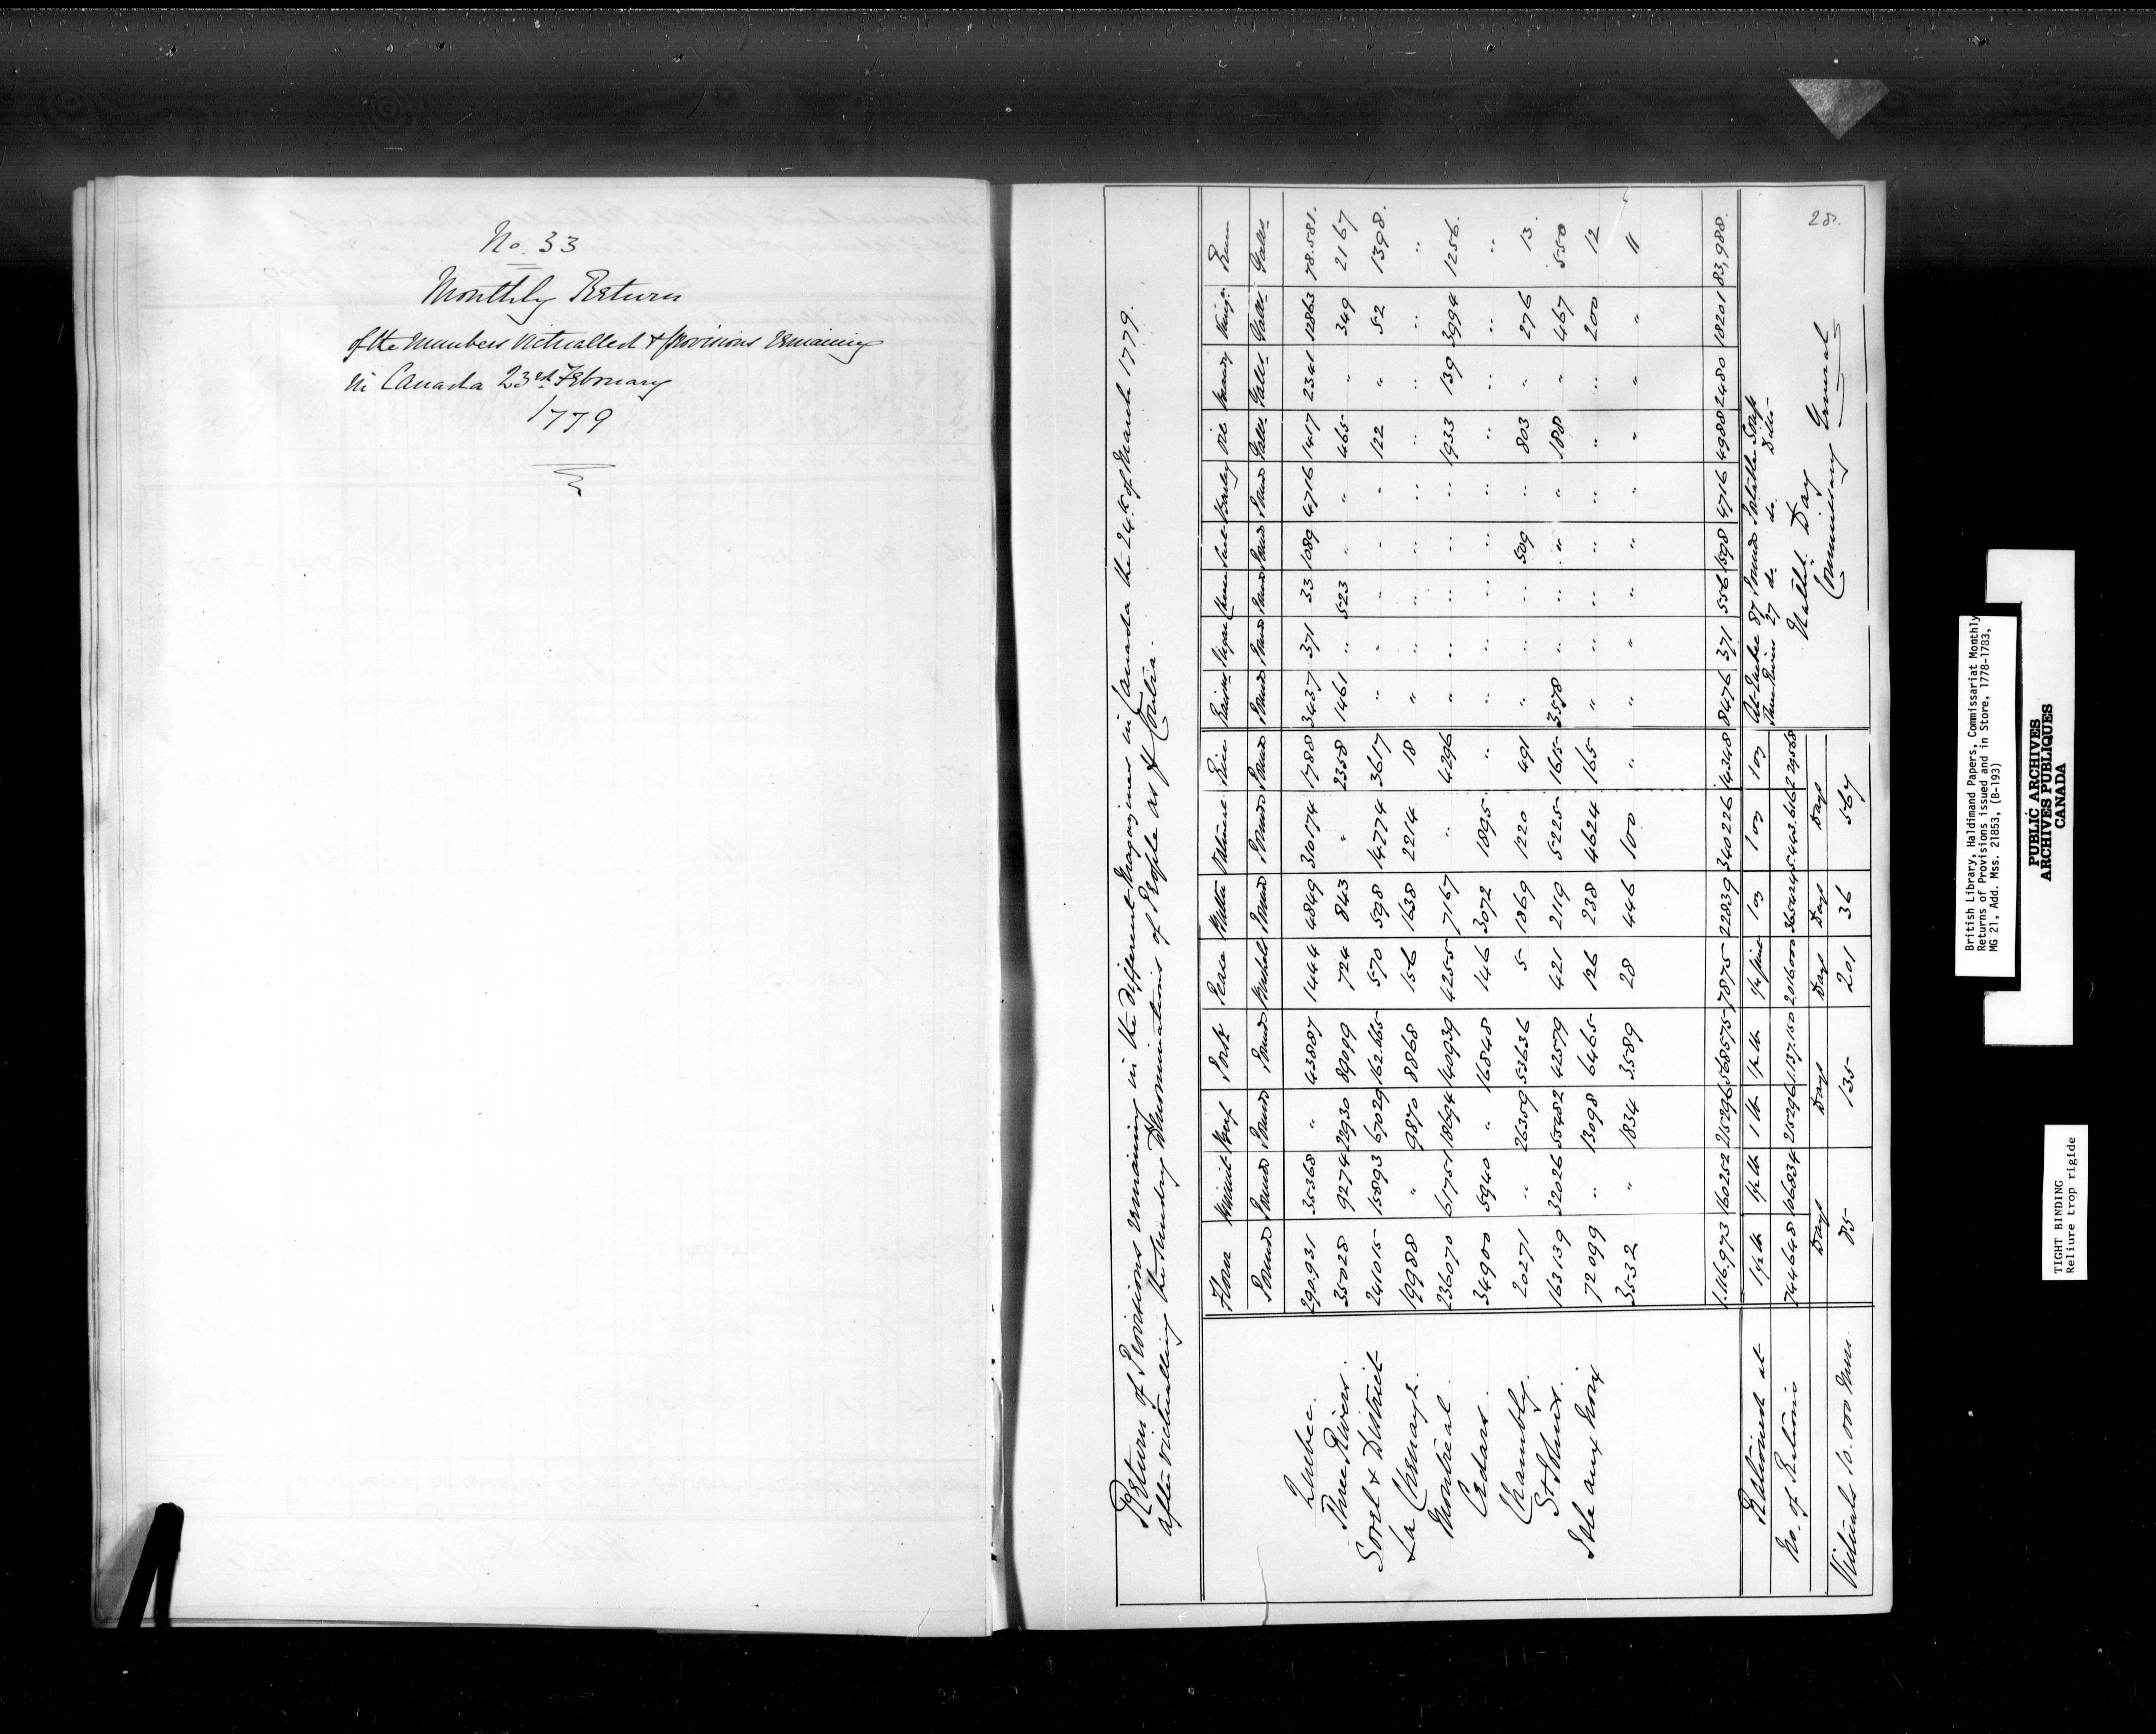 No. 33
Monthly Return
of the Numbers Victualled & Provisions Remaining
in Canada 23rd February
1779
28.
Return of Provisions remaining in the different Magazines in Canada the 24th of March 1779.
after victualling the sundry Denominations of People as of Contra.
Flour Biscuit Beef Pork Pease Butter Oatmeal Rice Raisins Sugar Cheese Suet Barley Oil Brandy Vinegr Rum
Pounds Pounds Pounds Pounds Bushells Pounds Pounds Pounds Pounds Pounds Pounds Pounds Pounds Galls. Galls. Galls. Galls.
Quebec. 290.931 35368 " 43887 1444 4849 310174 1788 3437 371 33 1089 4716 1417 2341 12863 78.581.
Three Rivers. 35028 9274 22930 89099 724 843 " 2358 1461 " 523 " " 465 " 349 2167
Sorel & District 241015 15893 67029 162.665 570 598 14774 3617 " " " " " 122 " 52 1398.
La Chenaye. 19988 " 9870 8868 156 1638 2214 18 " " " " " " " " "
Montreal 236070 61751 18694 140939 4255 7167 " 4296 " " " " " 1933 139 3994 1256.
Cedars. 34900 5940 " 16848 146 3072 1895 " " " " " " " " " "
Chambly. 20271 " 26359 53636 5 1869 1220 491 " " " 509 " 803 " 276 13.
St Johns. 163139 32026 55482 42579 421 2119 5225 1615 3578 " " " " 188 " 467 550
Isle aux Noix 72099 " 13098 6465 126 238 4624 165 " " " " " " " 200 12
3532 " 1834 3589 28 446 100 " " " " " " " " " 11
1.116.973 160252 215296 568575 7875 22839 340226 14348 8476 371 556 1598 4716 4988 2480 18201 83,988.
Rationed at 1½ lb 1 lb ½ lb 1 oz 1 oz 1 oz
No. of Rations 744648 215296 1.137.150 2016000 365424 5.443.616 229568
Days Days Days Days Days
Victuals 10.000 Men. 85 135 201 36 567
At Quebec 87 Pounds Portable Soup
Three Rivers 27 do. do. Ditto
Nathl. Day
Commissary General
British Library, Haldimand Papers, Commissariat Monthly
Returns of Provisions issued and in Store, 1778-1783,
MG 21, Add. Mss. 21853, (B-193)
PUBLIC ARCHIVES
ARCHIVES PUBLIQUES
CANADA
TIGHT BINDING
Reliure trop rigide